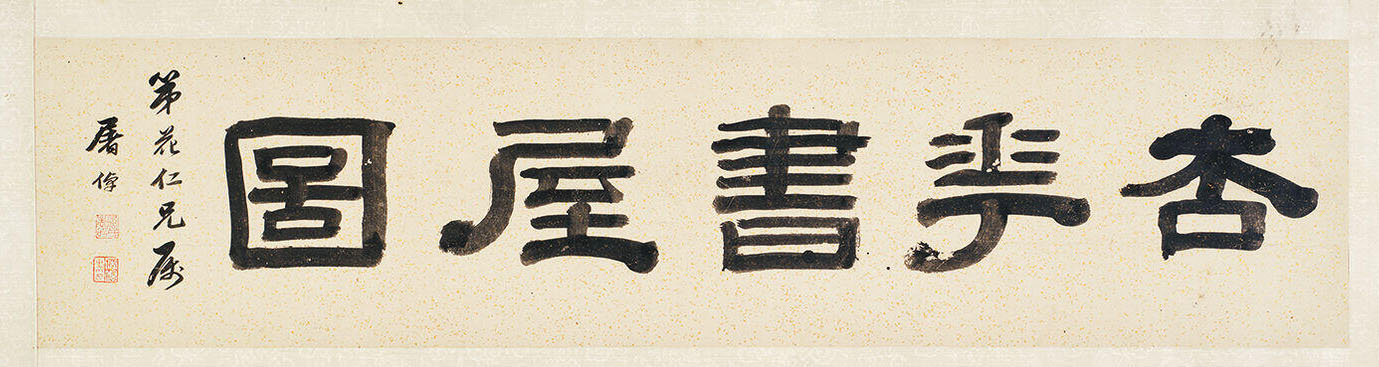 杏䔢書屋圖
第花仁兄属
屠倬